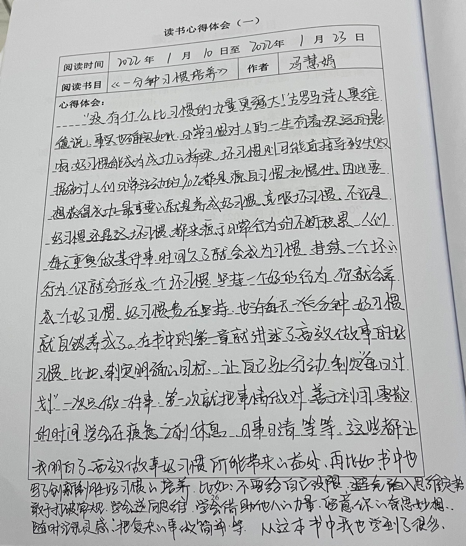 读书心得体会（一）
阅读时间 2022 年 1 月 10 日至 2022 年 1 月 23 日
阅读书目 《一分钟习惯培养》 作者 冯慧娟
心得体会：
"没有什么比习惯的力量更强大！"古罗马诗人奥维
德说，事实也确实如此，日常习惯对人的一生有着深远的影
响，好习惯能成为成功的桥梁，坏习惯则可能直接导致失败
据统计人们日常活动的90%都是源自习惯和惯性，因此要
想获得成功，最重要的就是养成好习惯，克服坏习惯，不论是
好习惯还是坏习惯，都来源于日常行为的不断积累，人们
每天重复做某件事，时间久了就会成为习惯，持续一个坏的
行为，你就会形成一个坏习惯，坚持一个好的行为，你就会养
成一个好习惯，好习惯贵在坚持，也许每天一张分钟，好习惯
就自然养成了。在书中的第一章就讲述了高效做事的好
习惯，比如，制定明确的目标，让自己马上行动，制定每日计
划"一次只做一件事，第一次就把事情做对，善于利用零散
的时间，学会在疲惫之前休息，日事日清等等，这些都让
我明白了高效做事好习惯所能带来的益处，再比如书中也
写了创新制胜好习惯的培养，比如：不要给自己设限，避免陷入思维定势
敢于打破常规，学会逆向思维，学会借助他人的力量，留意你的奇思妙想，
随时记录灵感，把复杂的事放简单等，从这本书中我也学到了很多。